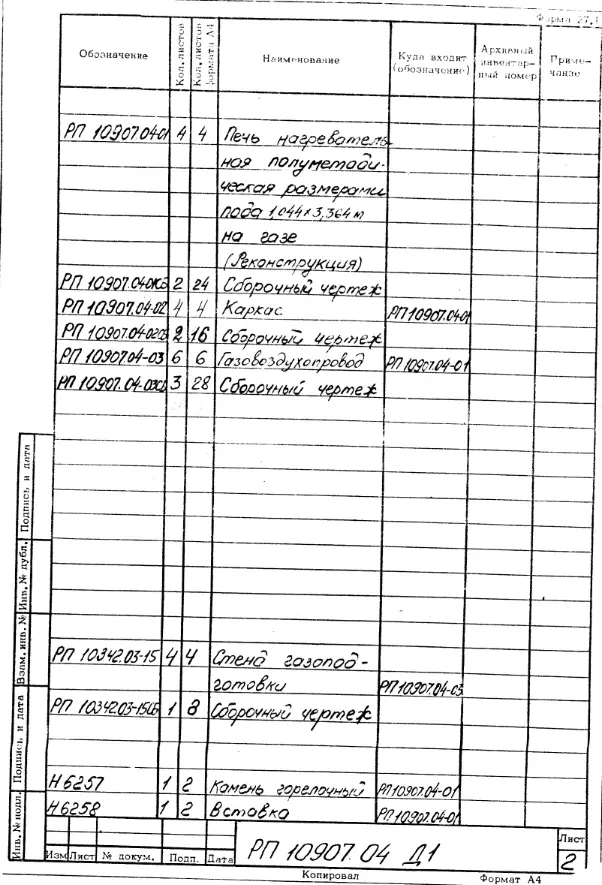 Форма 27.1
Обозначение Кол. листов Кол. листов формата А4 Наименование Куда входит (обозначение) Архивный инвентарный номер Примечание
РП 10907.04-01 4 4 Печь нагреватель-
ная полуметоди-
ческая размерами
пода 1,044х3,364 м
на газе
(Реконструкция)
РП 10907.04-01СБ 2 24 Сборочный чертеж
РП 10907.04-02 4 4 Каркас РП 10907.04-01
РП 10907.04-02СБ 2 16 Сборочный чертеж
РП 10907.04-03 6 6 Газовоздухопровод РП 10907.04-01
РП 10907.04-03СБ 3 28 Сборочный чертеж
РП 10342.03-15 4 4 Стенд газопод-
готовки РП 10907.04-03
РП 10342.03-15СБ 1 8 Сборочный чертеж
Н6257 1 2 Камень горелочный РП 10907.04-01
Н6258 1 2 Вставка РП 10907.04-01
Подпись и дата
Инв. № дубл.
Взам. инв. №
Подпись и дата
Инв. № подл.
Изм Лист № докум. Подп. Дата
РП 10907.04 Д1
Лист
2
Копировал Формат А4